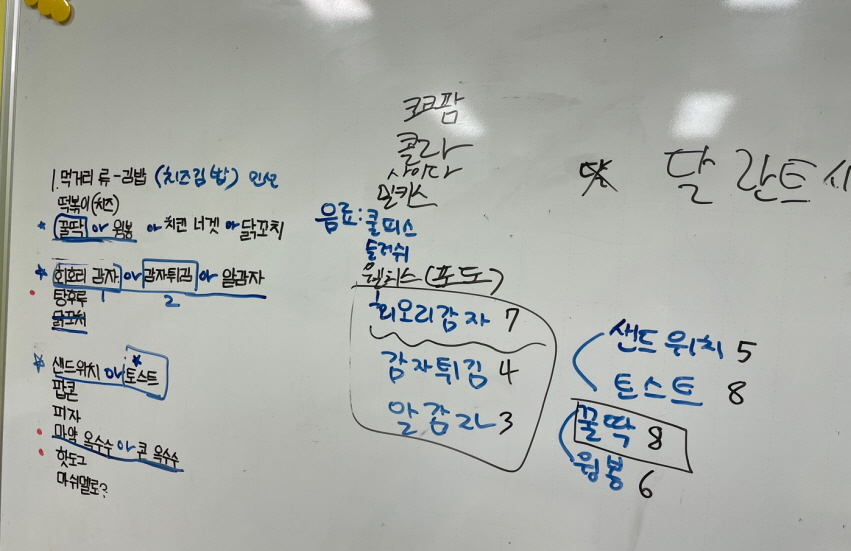 1. 먹거리 류 - 김밥 (치즈김밥) 인선
떡볶이(치즈)
* 꿀떡 or 윙봉 or 치킨 너겟 or 닭꼬치
* 회오리 감자 or 감자튀김 or 알감자
1 2
탕후루
닭꼬치
* 샌드위치 or 토스트
팝콘
피자
마약 옥수수 or 콘 옥수수
핫도그
마쉬멜로?
코코팜
콜라
사이다
밀키스
음료: 쿨피스
슬러쉬
웰치스(포도)
회오리감자 7
감자튀김 4
알감자 3
달란트시
샌드위치 5
토스트 8
꿀떡 8
윙봉 6